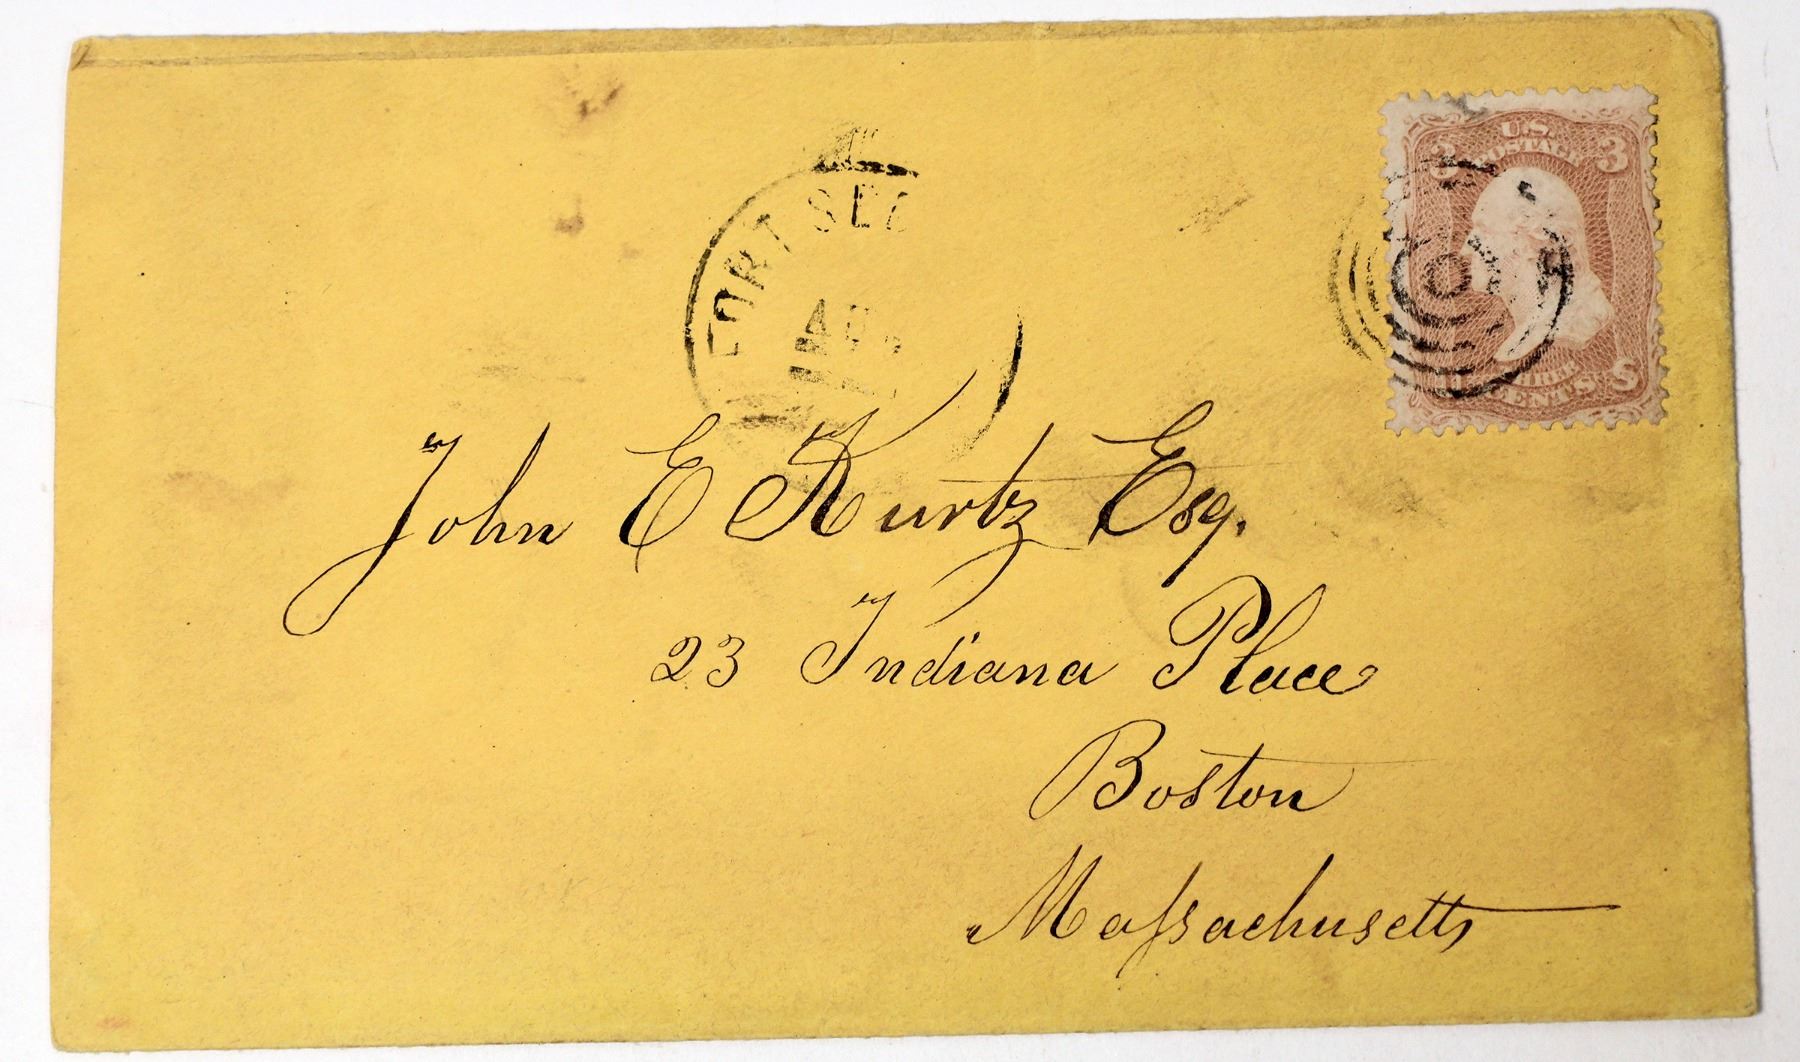 U.S.
POSTAGE
3 3
THREE
CENTS
U S
FORT
John E Kurtz Esq.
23 Indiana Place
Boston
Massachusetts